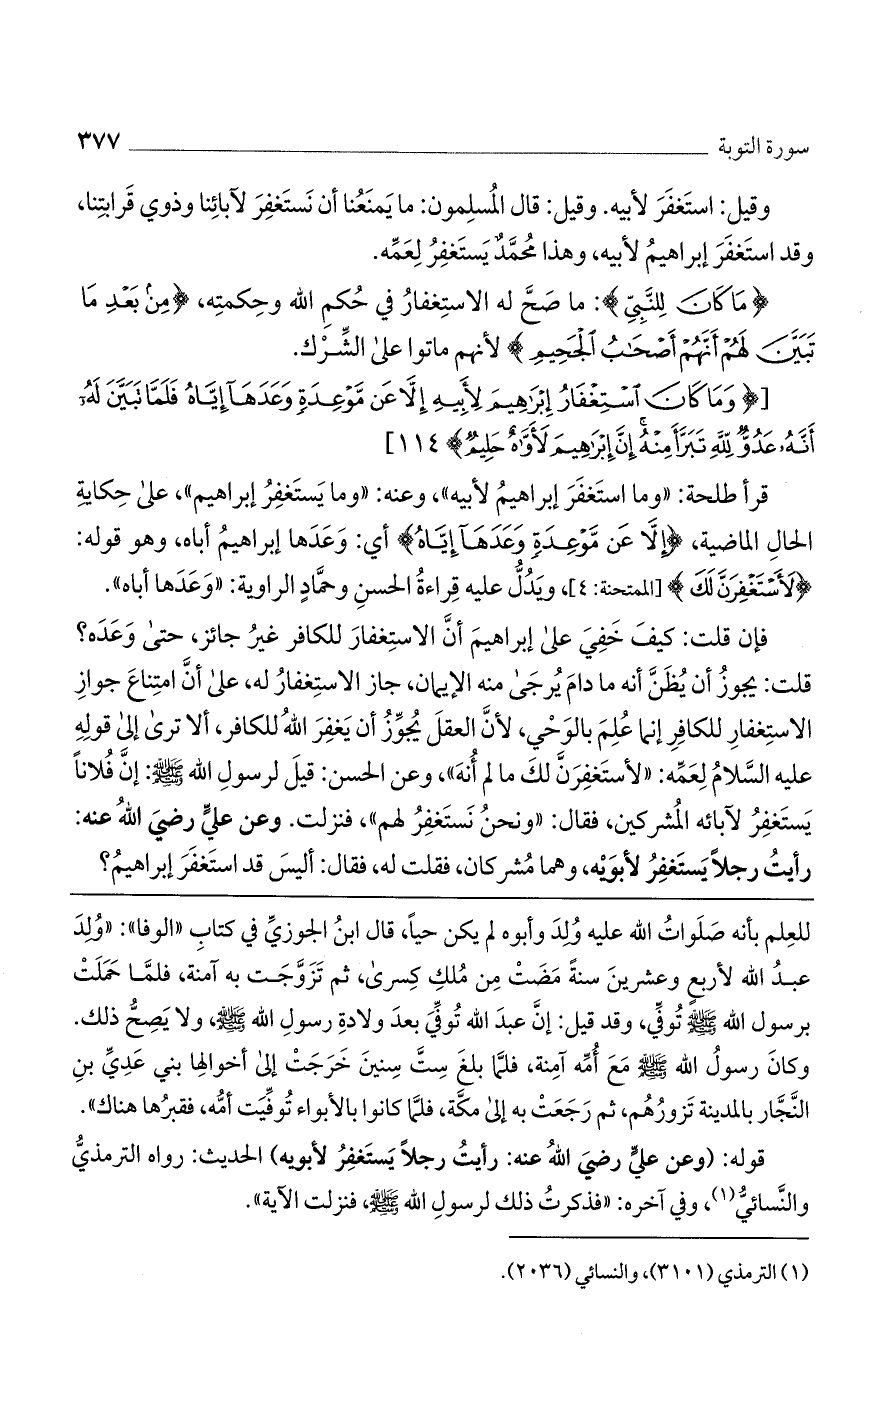 سورة التوبة ٣٧٧
وقيل: استَغفَرَ لأبيه. وقيل: قال المُسلِمون: ما يَمنَعُنا أن نَستَغفِرَ لآبائِنا وذوي قَرابتِنا،
وقد استَغفَرَ إبراهيمُ لأبيه، وهذا مُحمَّدٌ يَستَغفِرُ لِعَمِّه.
﴿مَا كَانَ لِلنَّبِيِّ﴾: ما صَحَّ له الاستِغفارُ في حُكمِ الله وحِكمتِه، ﴿مِنۢ بَعۡدِ مَا
تَبَيَّنَ لَهُمۡ أَنَّهُمۡ أَصۡحَٰبُ ٱلۡجَحِيمِ﴾ لأنهم ماتوا علىٰ الشِّرْك.
[﴿وَمَا كَانَ ٱسۡتِغۡفَارُ إِبۡرَٰهِيمَ لِأَبِيهِ إِلَّا عَن مَّوۡعِدَةٖ وَعَدَهَآ إِيَّاهُ فَلَمَّا تَبَيَّنَ لَهُۥٓ
أَنَّهُۥ عَدُوّٞ لِّلَّهِ تَبَرَّأَ مِنۡهُۚ إِنَّ إِبۡرَٰهِيمَ لَأَوَّٰهٌ حَلِيمٞ﴾ ١١٤]
قرأ طلحة: «وما استَغفَرَ إبراهيمُ لأبيه»، وعنه: «وما يَستَغفِرُ إبراهيم»، علىٰ حِكايةِ
الحالِ الماضية، ﴿إِلَّا عَن مَّوۡعِدَةٖ وَعَدَهَآ إِيَّاهُ﴾ أي: وَعَدَها إبراهيمُ أباه، وهو قوله:
﴿لَأَسۡتَغۡفِرَنَّ لَكَ﴾ [الممتحنة: ٤]، ويَدُلُّ عليه قِراءةُ الحسنِ وحمَّادٍ الراوية: «وَعَدَها أباه».
فإن قلت: كيفَ خَفِيَ علىٰ إبراهيمَ أنَّ الاستِغفارَ للكافر غيرُ جائز، حتىٰ وَعَدَه؟
قلت: يجوزُ أن يُظَنَّ أنه ما دامَ يُرجَىٰ منه الإيمان، جاز الاستِغفارُ له، علىٰ أنَّ امتِناعَ جوازِ
الاستِغفارِ للكافِرِ إنما عُلِمَ بالوَحْي، لأنَّ العقلَ يُجوِّزُ أن يَغفِرَ اللهُ للكافر، ألا ترىٰ إلىٰ قولِهِ
عليه السَّلامُ لِعَمِّه: «لأستَغفِرَنَّ لكَ ما لم أُنهَ»، وعن الحسن: قيلَ لرسولِ الله ﷺ: إنَّ فُلاناً
يَستَغفِرُ لآبائه المُشركين، فقال: «ونحنُ نَستَغفِرُ لهم»، فنزلت. وعن عليٍّ رضيَ اللهُ عنه:
رأيتُ رجلاً يَستَغفِرُ لأبوَيْه، وهما مُشركان، فقلت له، فقال: أليسَ قد استَغفَرَ إبراهيمُ؟
للعِلم بأنه صَلَواتُ الله عليه وُلِدَ وأبوه لم يكن حياً، قال ابنُ الجوزيِّ في كتابِ «الوفا»: «وُلِدَ
عبدُ الله لأربعٍ وعشرينَ سنةً مَضَتْ مِن مُلكِ كِسرىٰ، ثم تَزَوَّجَت به آمنة، فلمَّا حَمَلَتْ
برسول الله ﷺ تُوفِّي، وقد قيل: إنَّ عبدَ الله تُوفِّيَ بعدَ ولادةِ رسولِ الله ﷺ، ولا يَصِحُّ ذلك.
وكانَ رسولُ الله ﷺ مَعَ أُمِّه آمِنة، فلمَّا بلغَ سِتَّ سِنينَ خَرَجَتْ إلىٰ أخوالِها بني عَدِيِّ بنِ
النَّجَّار بالمدينة تَزورُهُم، ثم رَجَعَتْ به إلىٰ مكَّة، فلمَّا كانوا بالأبواء تُوفِّيَت أمُّه، فقبرُها هناك».
قوله: (وعن عليٍّ رضيَ اللهُ عنه: رأيتُ رجلاً يَستَغفِرُ لأبويه) الحديث: رواه الترمذيُّ
والنَّسائيُّ(١)، وفي آخره: «فذكرتُ ذلك لرسولِ الله ﷺ، فنزلت الآية».
(١) الترمذي (٣١٠١)، والنسائي (٢٠٣٦).